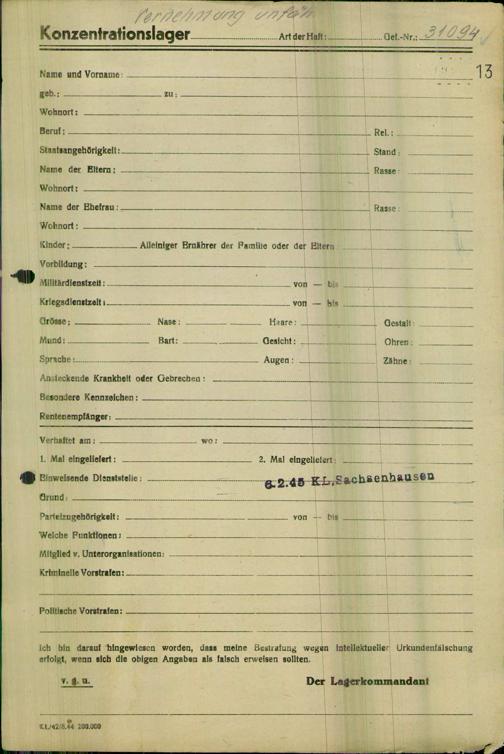 Vernehmung unfäh
Konzentrationslager Art der Haft: Gef.-Nr.: 31094
13
Name und Vorname:
geb.: zu:
Wohnort:
Beruf: Rel.:
Staatsangehörigkeit: Stand:
Name der Eltern: Rasse:
Wohnort:
Name der Ehefrau: Rasse:
Wohnort:
Kinder: Alleiniger Ernährer der Familie oder der Eltern
Vorbildung:
Militärdienstzeit: von — bis
Kriegsdienstzeit: von — bis
Grösse: Nase: Haare: Gestalt:
Mund: Bart: Gesicht: Ohren:
Sprache: Augen: Zähne:
Ansteckende Krankheit oder Gebrechen:
Besondere Kennzeichen:
Rentenempfänger:
Verhaftet am: wo:
1. Mal eingeliefert: 2. Mal eingeliefert:
Einweisende Dienststelle: 6.2.45 KL. Sachsenhausen
Grund:
Parteizugehörigkeit: von — bis
Welche Funktionen:
Mitglied v. Unterorganisationen:
Kriminelle Vorstrafen:
Politische Vorstrafen:
Ich bin darauf hingewiesen worden, dass meine Bestrafung wegen intellektueller Urkundenfälschung
erfolgt, wenn sich die obigen Angaben als falsch erweisen sollten.
v. g. u. Der Lagerkommandant
KL/42/5.44 200.000